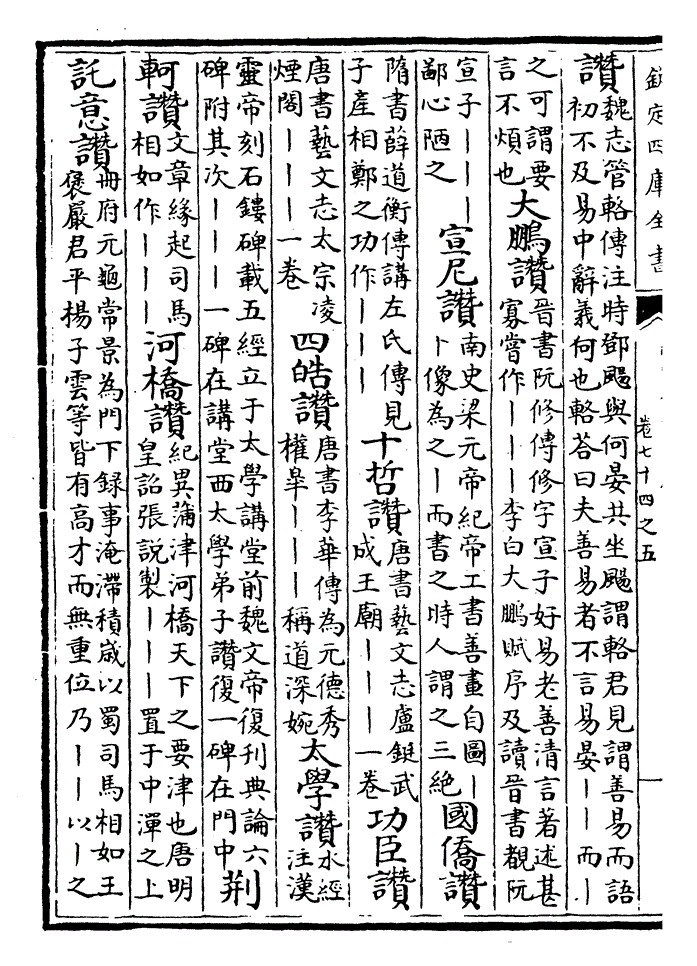 欽定四庫全書
卷七十四之五
讚魏志管輅傳注時鄧颺與何晏共坐颺謂輅君見謂善易而語初不及易中辭義何也輅答曰夫善易者不言易晏丨丨而丨
之可謂要言不煩也大鵬讚晉書阮修傳修字宣子好易老善清言著述甚寡嘗作丨丨丨李白大鵬賦序及讀晉書覩阮
宣子丨丨丨鄙心陋之宣尼讚南史梁元帝紀帝工書善畫自圖丨丨像為之丨而書之時人謂之三絕國僑讚
隋書薛道衡傳講左氏傳見子產相鄭之功作丨丨丨十哲讚唐書藝文志盧鋌武成王廟丨丨丨一卷功臣讚
唐書藝文志太宗凌煙閣丨丨丨一卷四皓讚唐書李華傳為元德秀權皋丨丨丨稱道深婉太學讚水經注漢
靈帝刻石鏤碑載五經立于太學講堂前魏文帝復刊典論六碑附其次丨丨丨一碑在講堂西太學弟子讚復一碑在門中荆
軻讚文章緣起司馬相如作丨丨丨河橋讚紀異蒲津河橋天下之要津也唐明皇詔張説製丨丨丨置于中潬之上
託意讚冊府元龜常景為門下録事淹滯積歲以蜀司馬相如王褒嚴君平揚子雲等皆有高才而無重位乃丨丨以丨之